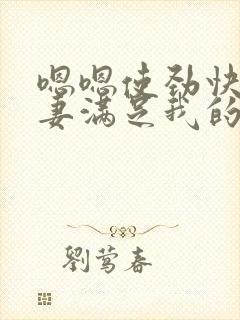 嗯嗯使劲快
妻满足我的
劉莺春